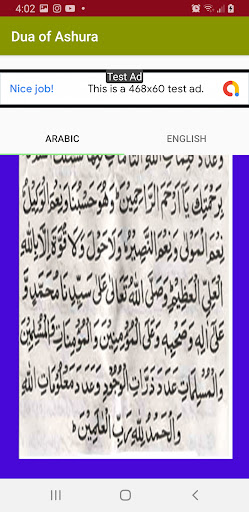 4:02
Dua of Ashura
Test Ad
Nice job!
This is a 468x60 test ad.
ARABIC
ENGLISH
بِرَحْمَتِكَ يَا اَرْحَمَ الرَّاحِمِيْنَ وَهُوَ حَسْبُنَا وَنِعْمَ الْوَكِيْلُ
نِعْمَ الْمَوْلٰى وَنِعْمَ النَّصِيْرُ وَلَا حَوْلَ وَلَا قُوَّةَ اِلَّا بِاللّٰهِ
الْعَلِيِّ الْعَظِيْمِ وَصَلَّى اللّٰهُ تَعَالٰى عَلٰى سَيِّدِنَا مُحَمَّدٍ وَّ
عَلٰى اٰلِهٖ وَصَحْبِهٖ وَعَلَى الْمُؤْمِنِيْنَ وَالْمُؤْمِنَاتِ وَالْمُسْلِمِيْنَ
وَالْمُسْلِمَاتِ عَدَدَ ذَرَّاتِ الْوُجُوْدِ وَعَدَدَ مَعْلُوْمَاتِ اللّٰهِ
وَالْحَمْدُ لِلّٰهِ رَبِّ الْعٰلَمِيْنَ